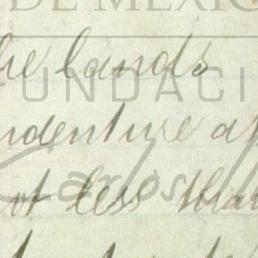 DE MÉXICO
the lands
FUNDACI
ndenture at
Carlos
ot less than